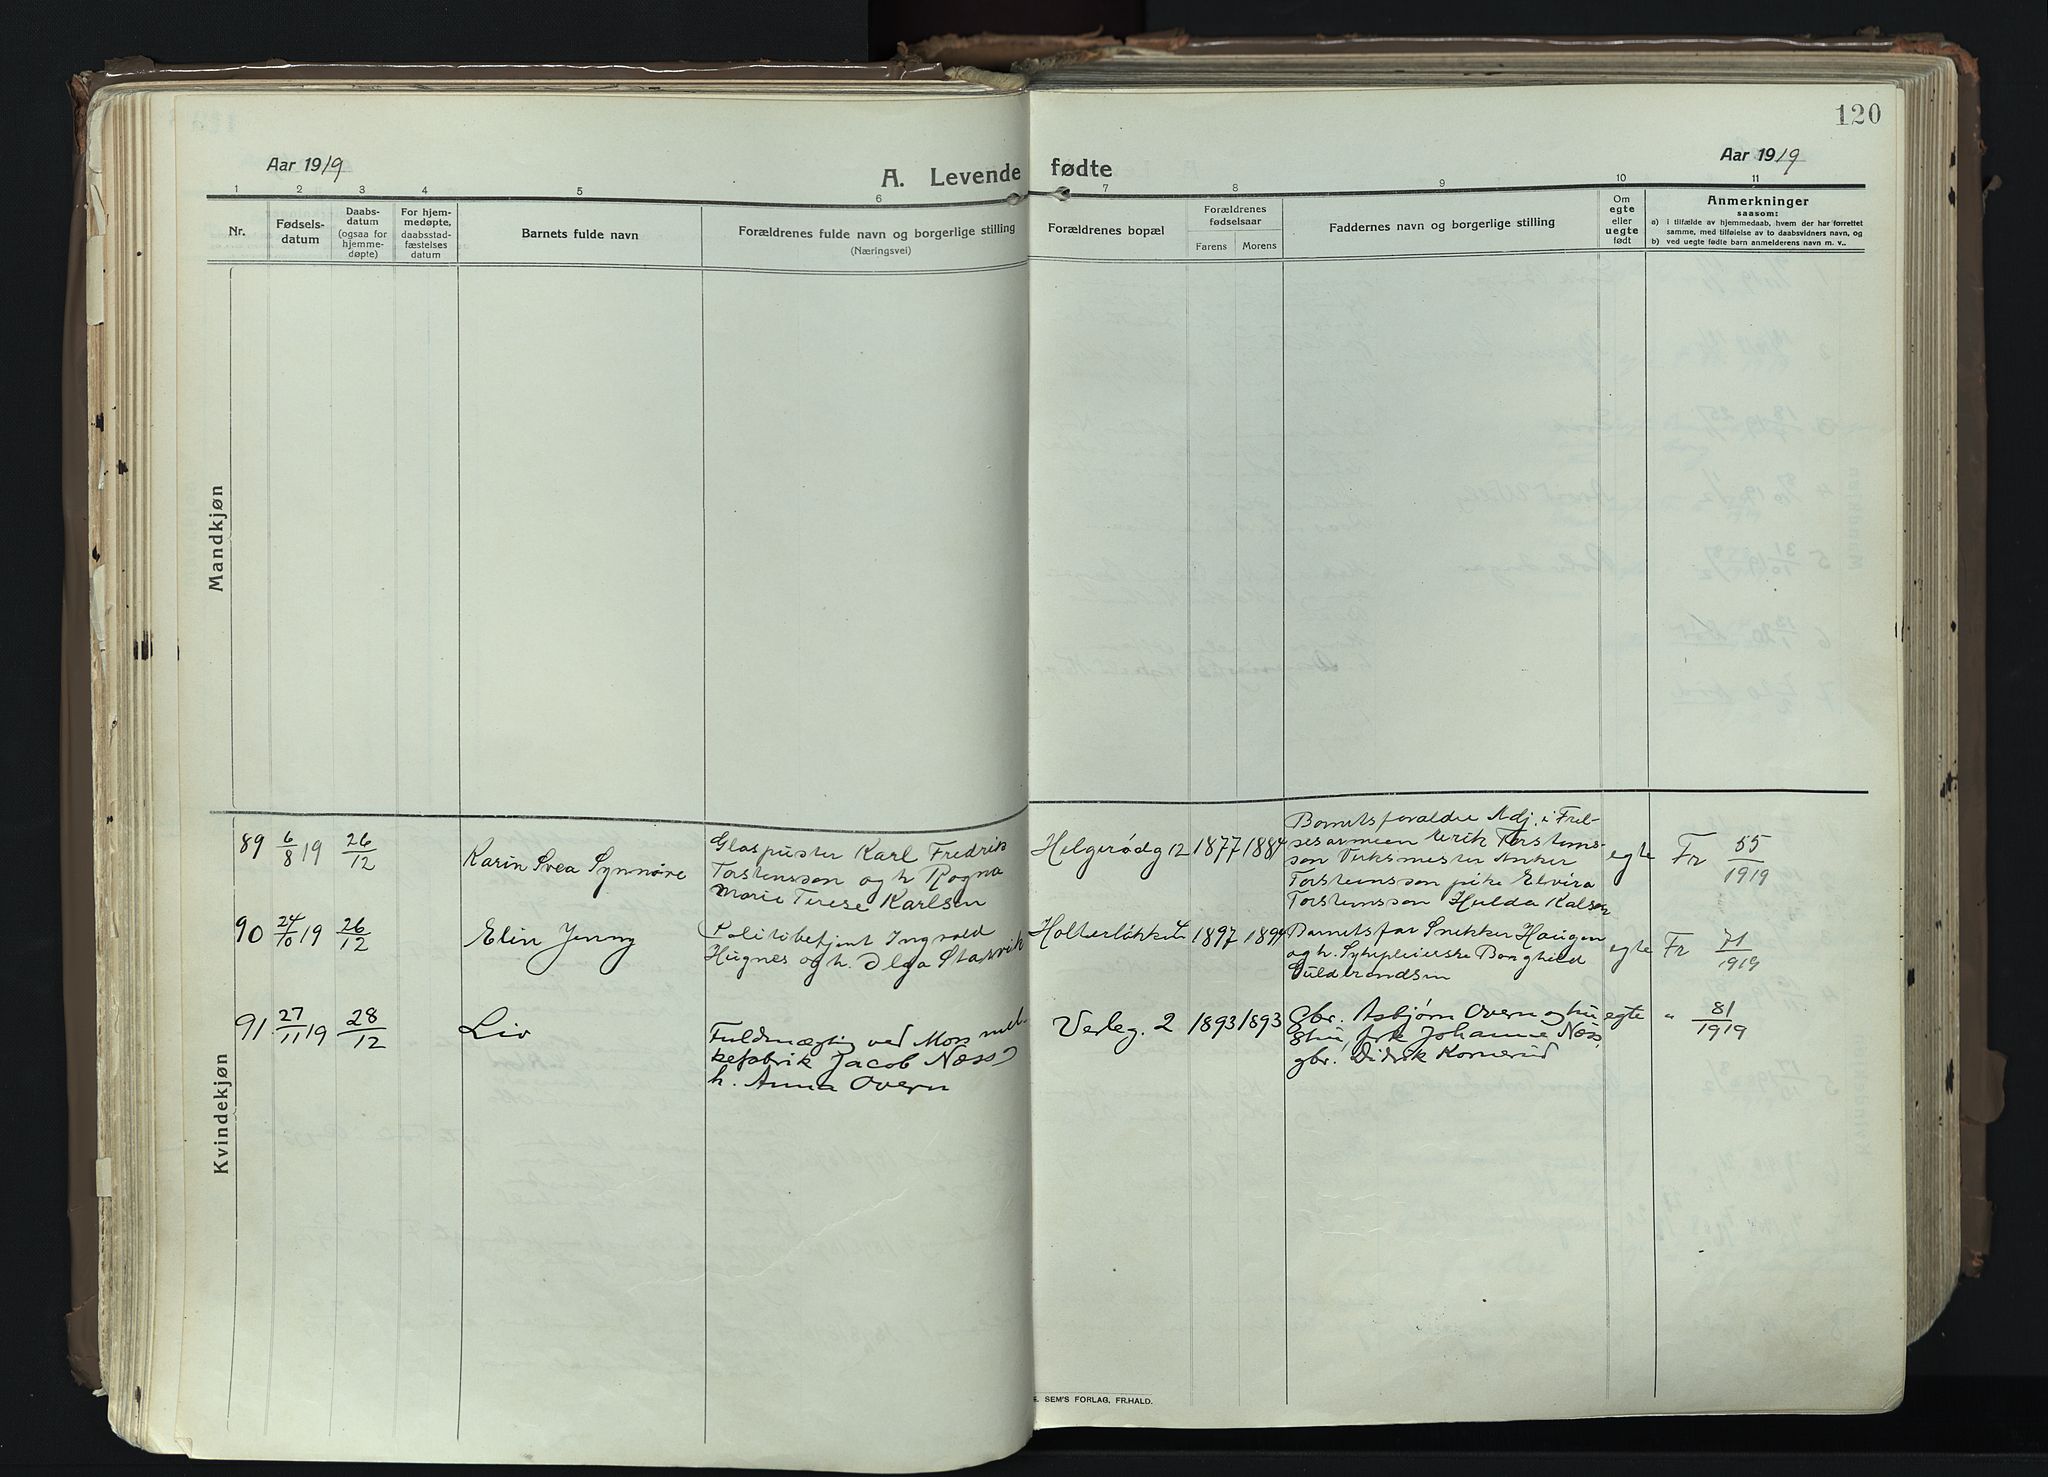 120
Aar 1919
A. Levende fødte
Aar 1919
1 2 3 4 5 6 7 8 9 10 11
Nr.
Fødsels-
datum
Daabs-
datum
(ogsaa for
hjemme-
døpte)
For hjem-
medøpte,
daabsstad-
fæstelses
datum
Barnets fulde navn
Forældrenes fulde navn og borgerlige stilling
(Næringsvei)
Forældrenes bopæl
Forældrenes
fødselsaar
Farens Morens
Faddernes navn og borgerlige stilling
Om
egte
eller
uegte
født
Anmerkninger
saasom:
a) i tilfælde av hjemmedaab, hvem der har forrettet
samme, med tilføielse av to daabsvidners navn, og
b) ved uegte fødte barn anmelderens navn m. v..
Mandkjøn
Kvindekjøn
89 6/8 19 26/12
Karin Svea Synnøve
Glaspuster Karl Fredrik
Torstensson og h. Ragna
Marie Terese Karlsen
Helgerødg 12 1877 1884
Barnets foraldre Adj. i Frel-
sesarmeen Torstens-
son Verksmester Anker
Torstensson pike Elvira
Torstensson Hulda
egte Fr 55/1919
90 24/10 19 26/12
Elin Jenny
Politibetjent Ingvald
Hugnes og h. Olga Starvik
1897 1894
Barnets far Snekker Haugen
og h. Sykepleierske Borghild
Guldbrandsen
egte Fr 71/1919
91 27/11 19 28/12
Liv
Fuldmægtig ved Moss mel-
kefabrik Jacob Næss
h. Anna Overn
Verleg. 2 1893 1893
Gbr. Asbjørn Overn og hu
stru, frk Johanne Næss,
gbr. Didrik Kornerud
egte " 81/1919
SEM'S FORLAG, FR.HALD.